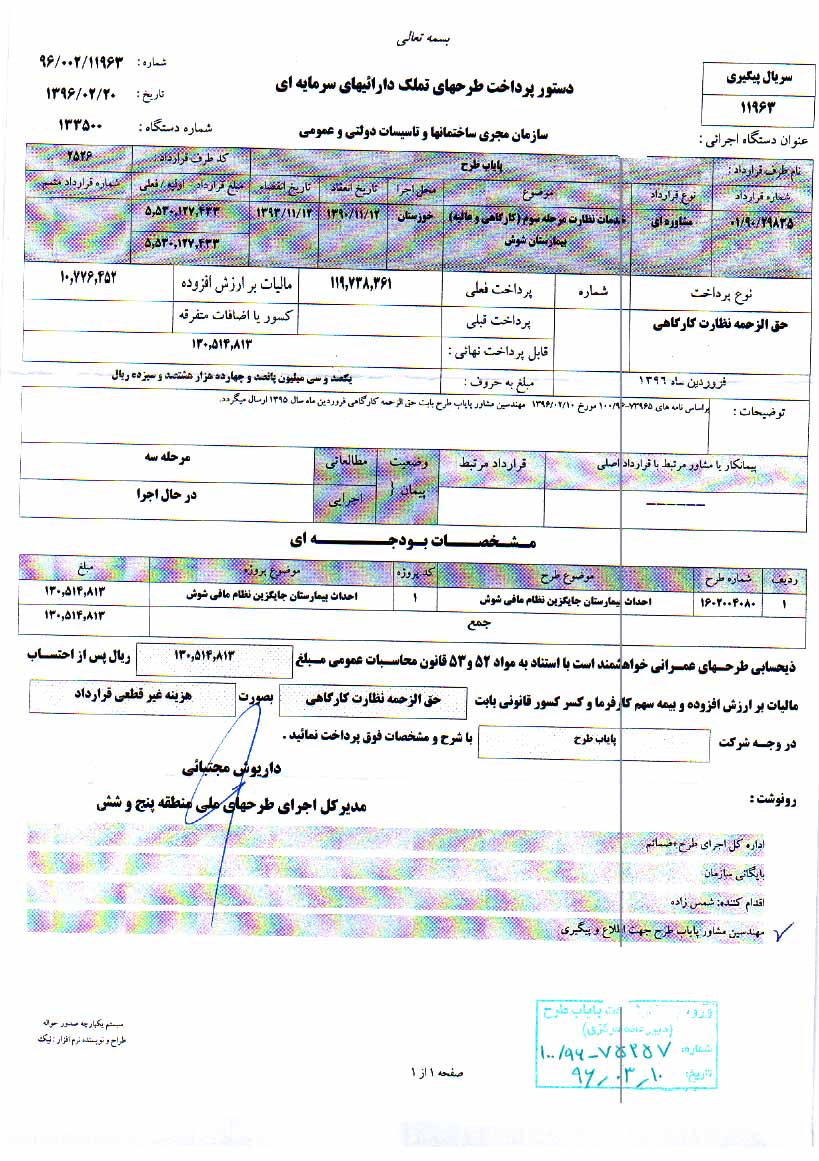 بسمه تعالی
شماره : ۹۶/۰۰۲/۱۱۹۶۳
تاریخ : ۱۳۹۶/۰۲/۲۰
شماره دستگاه : ۱۳۳۵۰۰
دستور پرداخت طرحهای تملک دارائیهای سرمایه ای
سریال پیگیری
۱۱۹۶۳
عنوان دستگاه اجرائی : سازمان مجری ساختمانها و تاسیسات دولتی و عمومی
نام طرف قرارداد : پایاب طرح کد طرف قرارداد : ۲۵۲۶
شماره قرارداد نوع قرارداد موضوع محل اجرا تاریخ انعقاد تاریخ انقضاء مبلغ قرارداد اولیه / فعلی شماره قرارداد متمم
۰۱/۹۰/۲۹۸۳۵ مشاوره ای خدمات نظارت مرحله سوم (کارگاهی و عالیه) بیمارستان شوش خوزستان ۱۳۹۰/۱۱/۱۲ ۱۳۹۳/۱۱/۱۲ ۵,۵۳۰,۱۲۷,۴۳۳
۵,۵۳۰,۱۲۷,۴۳۳
نوع پرداخت شماره پرداخت فعلی ۱۱۹,۷۳۸,۳۶۱ مالیات بر ارزش افزوده ۱۰,۷۷۶,۴۵۲
حق الزحمه نظارت کارگاهی پرداخت قبلی کسور یا اضافات متفرقه
قابل پرداخت نهائی : ۱۳۰,۵۱۴,۸۱۳
فروردین ماه ۱۳۹۶ مبلغ به حروف : یکصد و سی میلیون پانصد و چهارده هزار هشتصد و سیزده ریال
توضیحات : براساس نامه های ۷۳۹۶۵-۱۰۰/۹۶ مورخ ۱۳۹۶/۰۲/۱۰ مهندسین مشاور پایاب طرح بابت حق الزحمه کارگاهی فروردین ماه سال ۱۳۹۵ ارسال میگردد.
پیمانکار یا مشاور مرتبط با قرارداد اصلی قرارداد مرتبط وضعیت پیمان مطالعاتی مرحله سه
------ اجرایی در حال اجرا
مشخصات بودجه ای
ردیف شماره طرح موضوع طرح کد پروژه موضوع پروژه مبلغ
۱ ۱۶۰۲۰۰۴۰۸۰ احداث بیمارستان جایگزین نظام مافی شوش ۱ احداث بیمارستان جایگزین نظام مافی شوش ۱۳۰,۵۱۴,۸۱۳
جمع ۱۳۰,۵۱۴,۸۱۳
ذیحسابی طرحهای عمرانی خواهشمند است با استناد به مواد ۵۲ و ۵۳ قانون محاسبات عمومی مبلغ ۱۳۰,۵۱۴,۸۱۳ ریال پس از احتساب
مالیات بر ارزش افزوده و بیمه سهم کارفرما و کسر کسور قانونی بابت حق الزحمه نظارت کارگاهی بصورت هزینه غیر قطعی قرارداد
در وجه شرکت پایاب طرح با شرح و مشخصات فوق پرداخت نمائید .
داریوش مجتبائی
مدیرکل اجرای طرحهای ملی منطقه پنج و شش
رونوشت :
اداره کل اجرای طرح+ضمائم
بایگانی سازمان
اقدام کننده: شمس زاده
مهندسین مشاور پایاب طرح جهت اطلاع و پیگیری
پایاب طرح
(دبیرخانه مرکزی)
شماره: ۱۰۰/۹۶-۷۵۲۵۷
تاریخ: ۹۶/۰۳/۱۰
سیستم یکپارچه صدور حواله
طراح و نویسنده نرم افزار : نیک
صفحه ۱ از ۱